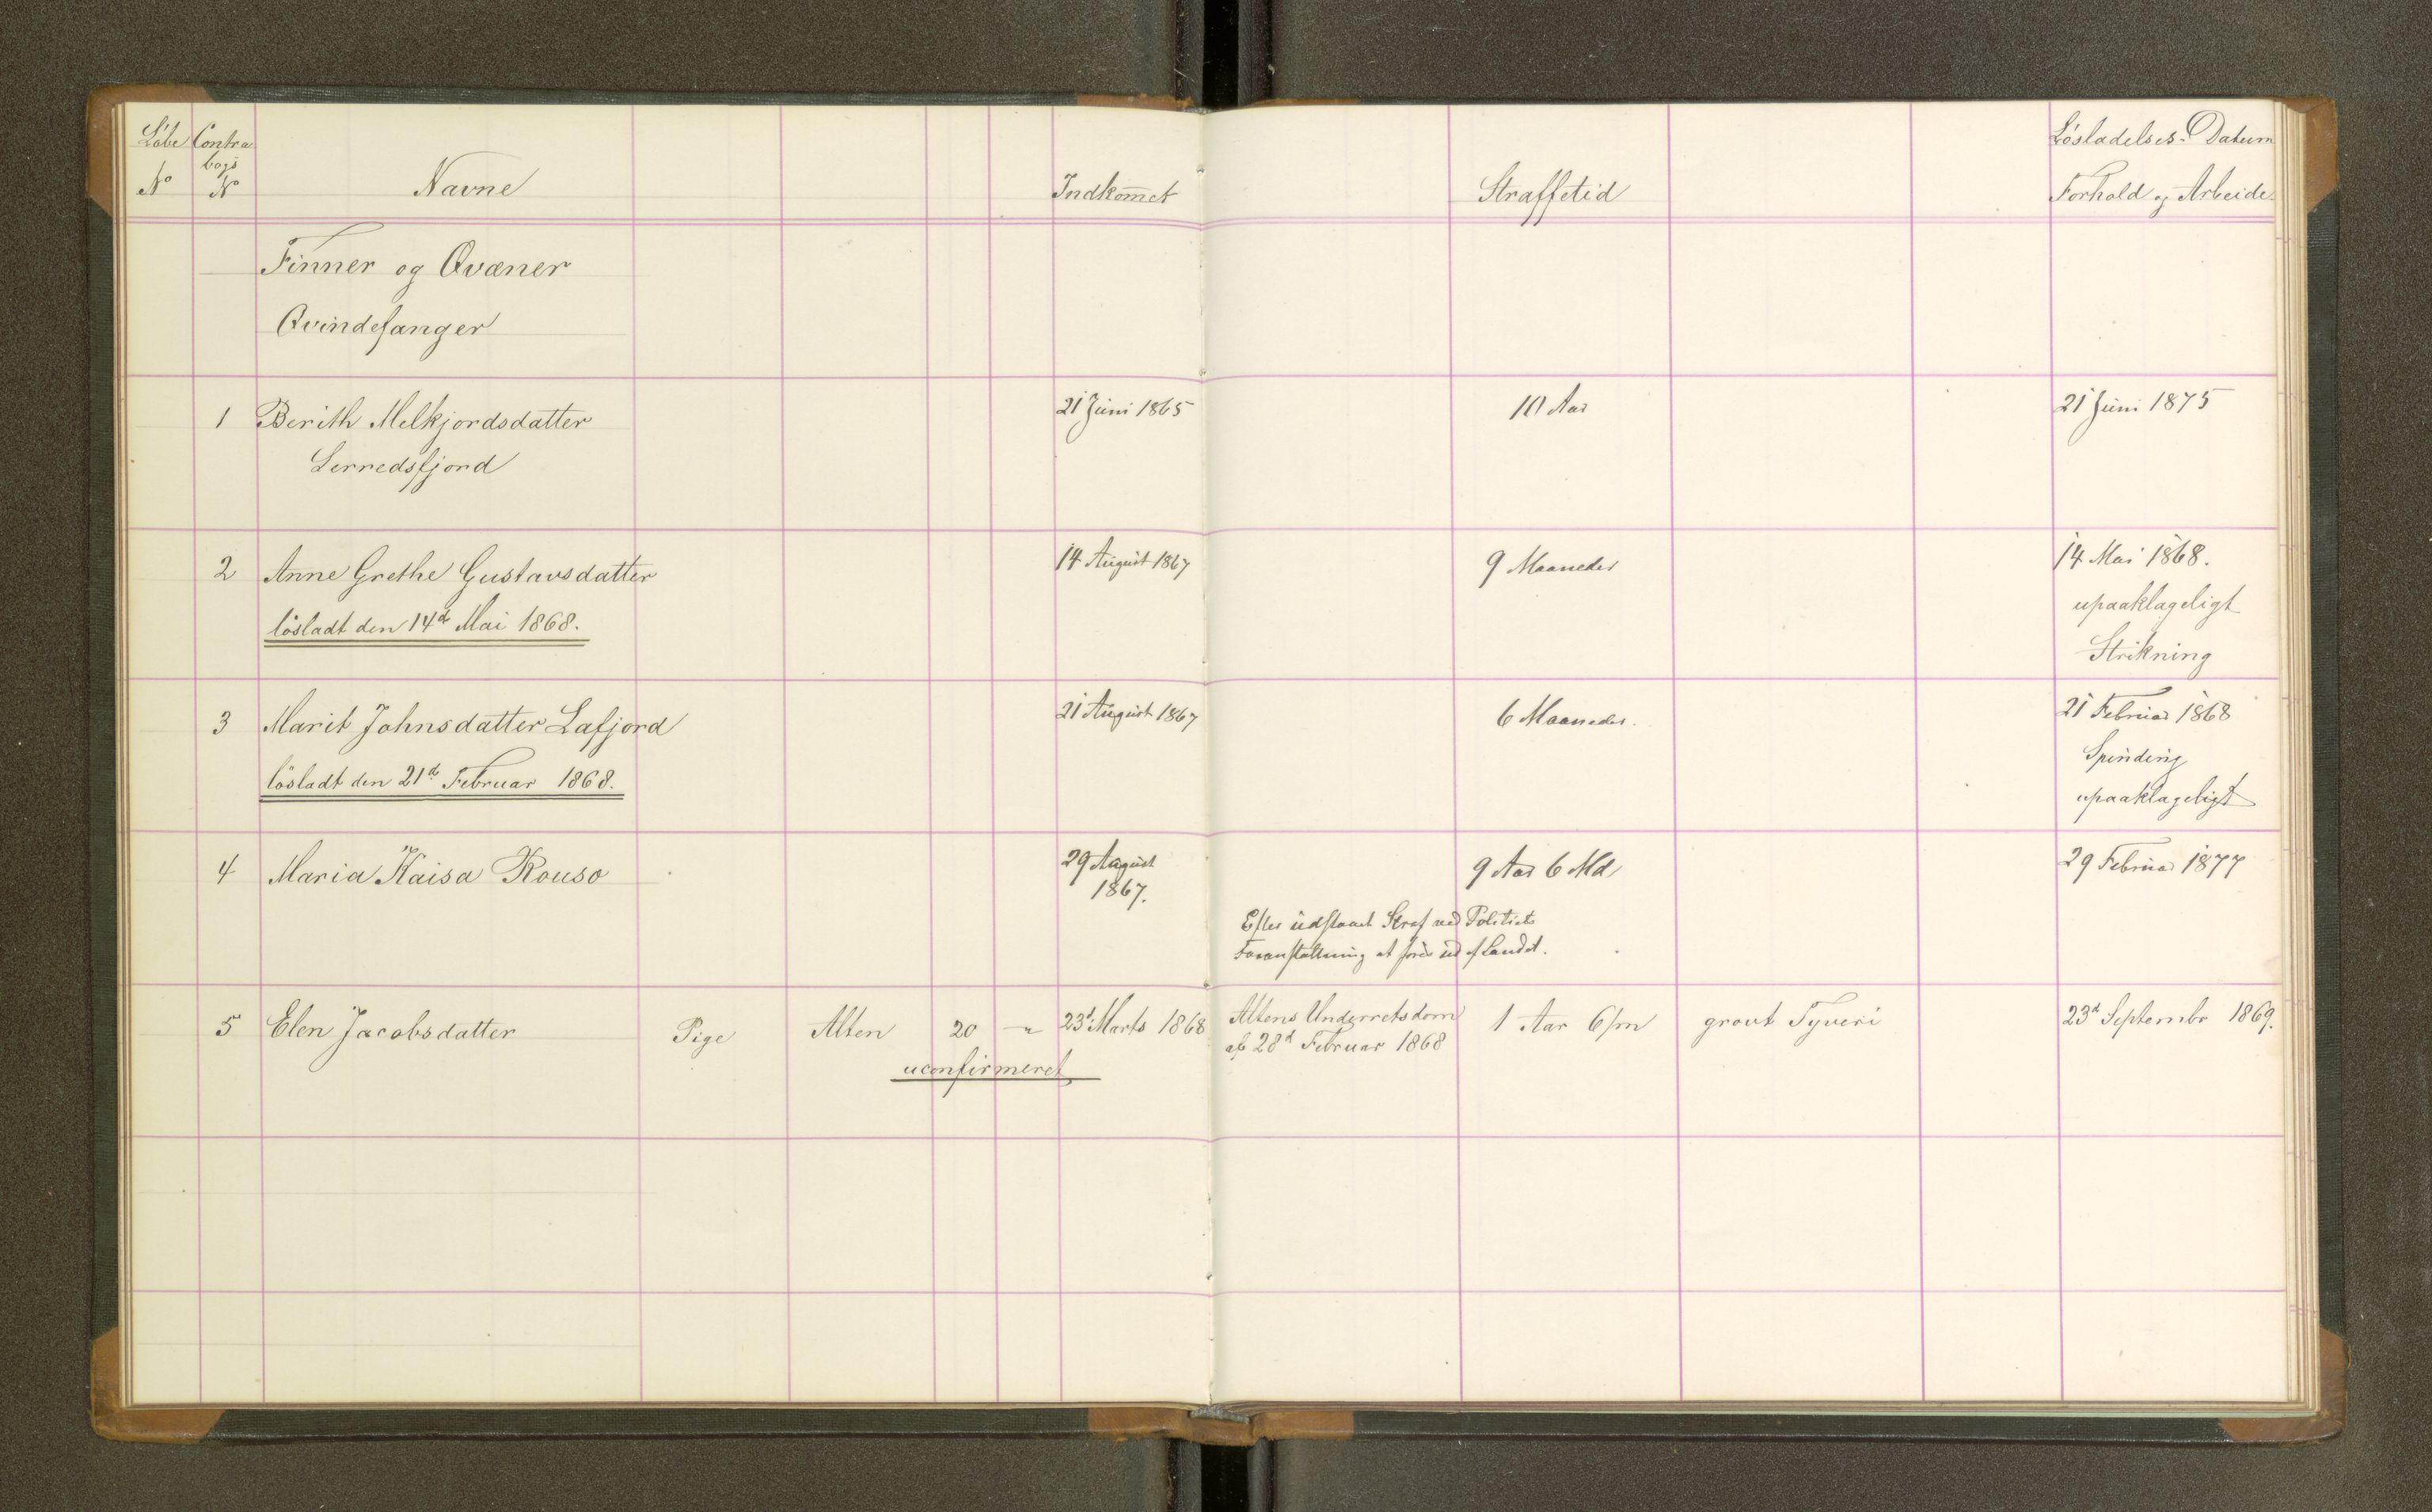 Løbe Contra
bogs
No No Navne Indkom̅et Straffetid
Løsladelses-Datum
Forhold og Arbeide
Finner og Qvæner
Qvindefanger
1 Berith Melkjordsdatter 21 Juni 1865 10 Aar 21 Juni 1875
Lerredsfjord
2 Anne Grethe Gustavsdatter 14 August 1867 9 Maaneder 14 Mai 1868.
løsladt den 14d Mai 1868. upaaklageligt
Strikning
3 Marit Johnsdatter Lafjord 21 August 1867 6 Maaneder. 21 Februar 1868
løsladt den 21d Februar 1868. Spinding
upaaklageligt
4 Maria Kaisa Rouso 29 August 9 Aar 6 Md 29 Februar 1877
1867.
Efter udstaaet Straf ved Politiets
Foranstaltning at føres ud af Landet.
5 Elen Jacobsdatter Pige Alten 20 " 23d Marts 1868 Altens Underretsdom 1 Aar 6/m grovt Tyveri 23d Septembr 1869.
af 28d Februar 1868
uconfirmeret